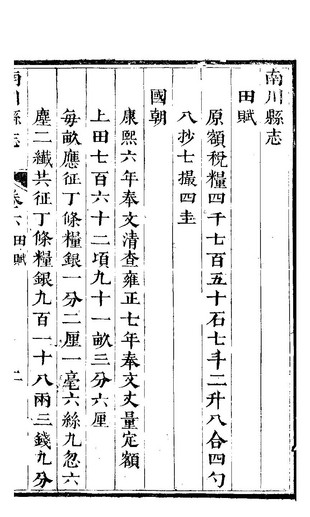 南川縣志
田賦
原額稅糧四千七百五十石七斗二升八合四勺
八抄七撮四圭
國朝
康熙六年奉文清查雍正七年奉文丈量定額
上田七百六十二頃九十一畝三分六厘
每畝應征丁條糧銀一分二厘一毫六絲九忽六
塵二纖共征丁條糧銀九百一十八兩三錢九分
南川縣志
卷六田賦